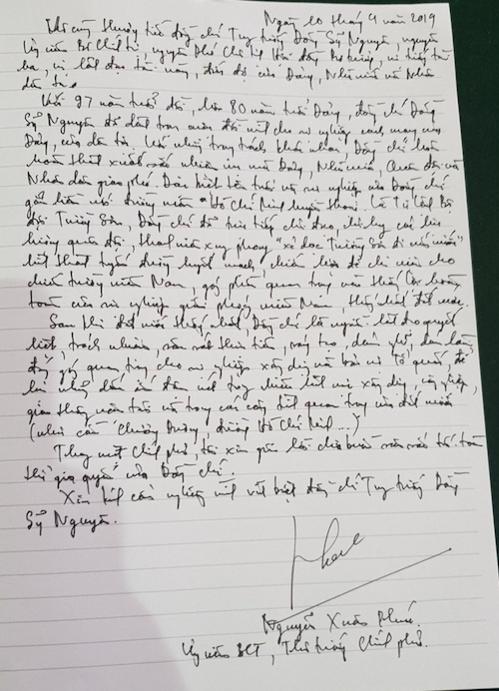 Ngày 10 tháng 4 năm 2019
Vô cùng thương tiếc đồng chí Trung tướng Đồng Sỹ Nguyên, nguyên
Ủy viên Bộ Chính trị, nguyên Phó Chủ tịch Hội đồng Bộ trưởng, vị tướng tài
ba, vị lãnh đạo tài năng, đức độ của Đảng, Nhà nước và Nhân
dân ta.
Với 97 năm tuổi đời, hơn 80 năm tuổi Đảng, đồng chí Đồng
Sỹ Nguyên đã dành trọn cuộc đời mình cho sự nghiệp cách mạng của
Đảng, của dân tộc. Với những trọng trách khác nhau, Đồng chí luôn
hoàn thành xuất sắc nhiệm vụ mà Đảng, Nhà nước, Quân đội và
Nhân dân giao phó. Đặc biệt tên tuổi và sự nghiệp của Đồng chí
gắn liền với đường mòn "Hồ Chí Minh huyền thoại. Là Tư lệnh Bộ
đội Trường Sơn, Đồng chí đã trực tiếp chỉ đạo, chỉ huy các lực
lượng quân đội, thanh niên xung phong "xẻ dọc Trường Sơn đi cứu nước"
hình thành tuyến đường huyết mạch, chiến lược để chi viện cho
chiến trường miền Nam, góp phần quan trọng vào thắng lợi hoàn
toàn của sự nghiệp giải phóng miền Nam, thống nhất đất nước.
Sau khi đất nước thống nhất, Đồng chí là người lãnh đạo quyết
liệt, trách nhiệm, sâu sát thực tiễn, sáng tạo, dám nghĩ, dám làm
đóng góp quan trọng cho sự nghiệp xây dựng và bảo vệ Tổ quốc, để
lại những dấu ấn đậm nét trong nhiều lĩnh vực xây dựng, công nghiệp,
giao thông vận tải và trong các công trình quan trọng của đất nước
(như cầu Chương Dương, đường Hồ Chí Minh...)
Thay mặt Chính phủ, tôi xin gửi lời chia buồn sâu sắc tới toàn
thể gia quyến của Đồng chí.
Xin kính cẩn nghiêng mình vĩnh biệt đồng chí Trung tướng Đồng
Sỹ Nguyên.
Nguyễn Xuân Phúc.
Ủy viên BCT, Thủ tướng Chính phủ.